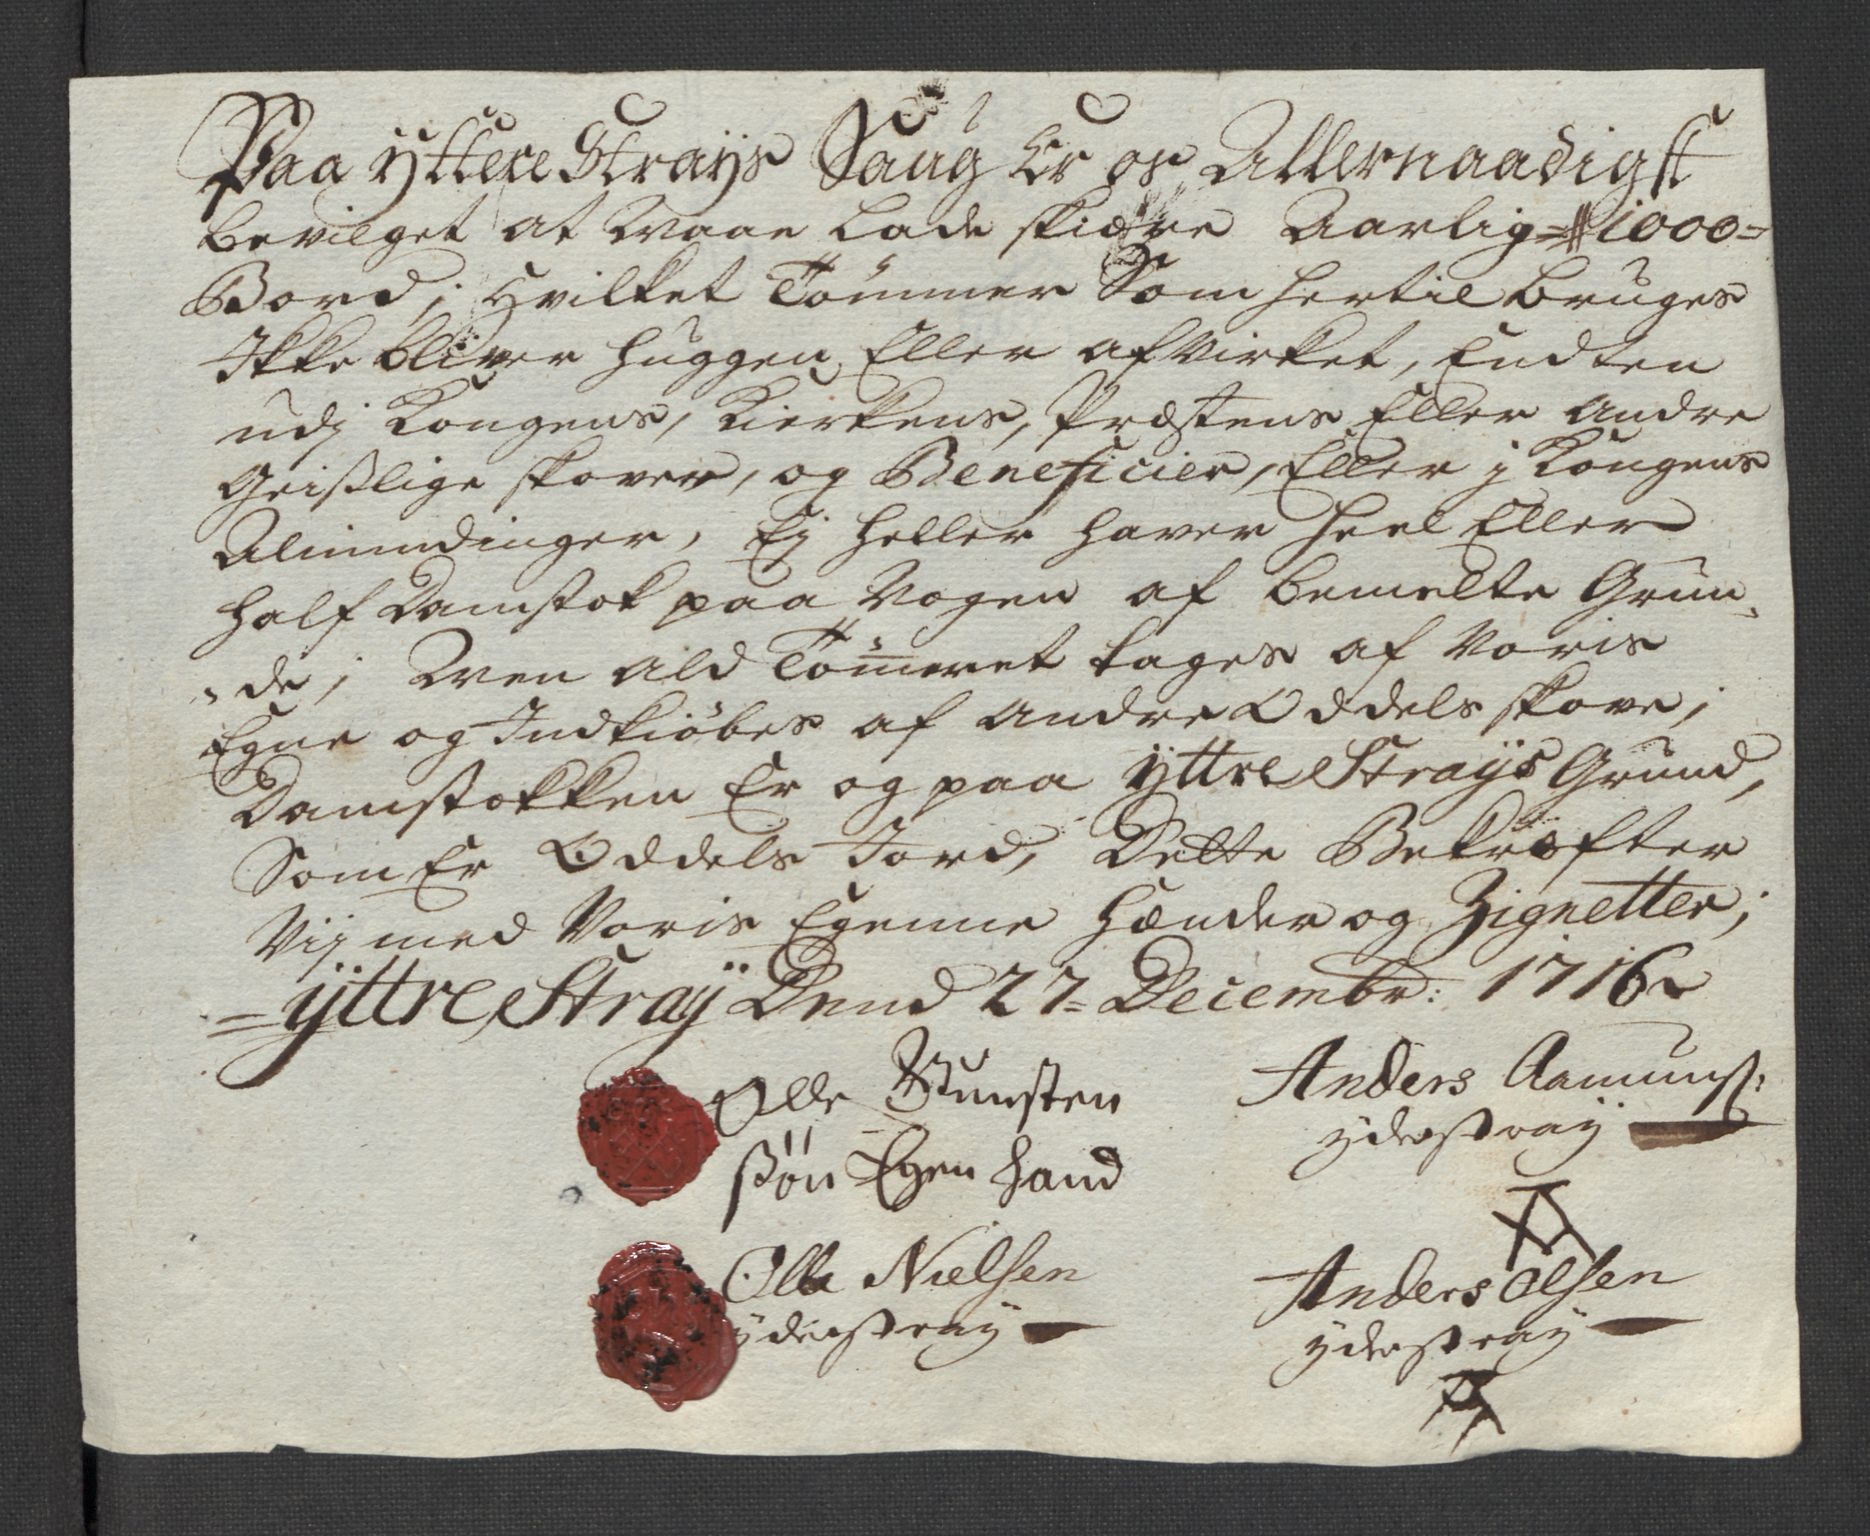 Paa yttere Strays Saug Er os Allernaadigst
bevilget at Maae Lade skiære Aarlig = 1000 =
Bord; Hvilket Tømmer Som hertil bruges
Ikke bliver huggen Eller afvirket, Endten
udj Kongens, Kierkens, Præstens Eller Andre
Geistlige skover, og Beneficier, Eller j Kongens
Almindinger, Ej heller haver heel Eller
half Damstok paa Nogen af bemelte Grun-
-de; Men ald Tømeret tages af Voris
Egne og Indkiøbes af Andre Oddels skove;
Damstokken Er og paa yttre Strays Grund,
Som Er Oddels Jord, Dette Bekræfter
Vij med Voris Egenne Hænder og Zignetter;
= yttre Stray Dend 27 = Decembr: 1716
Olle Gunsten
søn Egen Hand
Anders Aamunss:
yderstray
Olle Nielsen
yderstray
Anders Olsen
yderstray